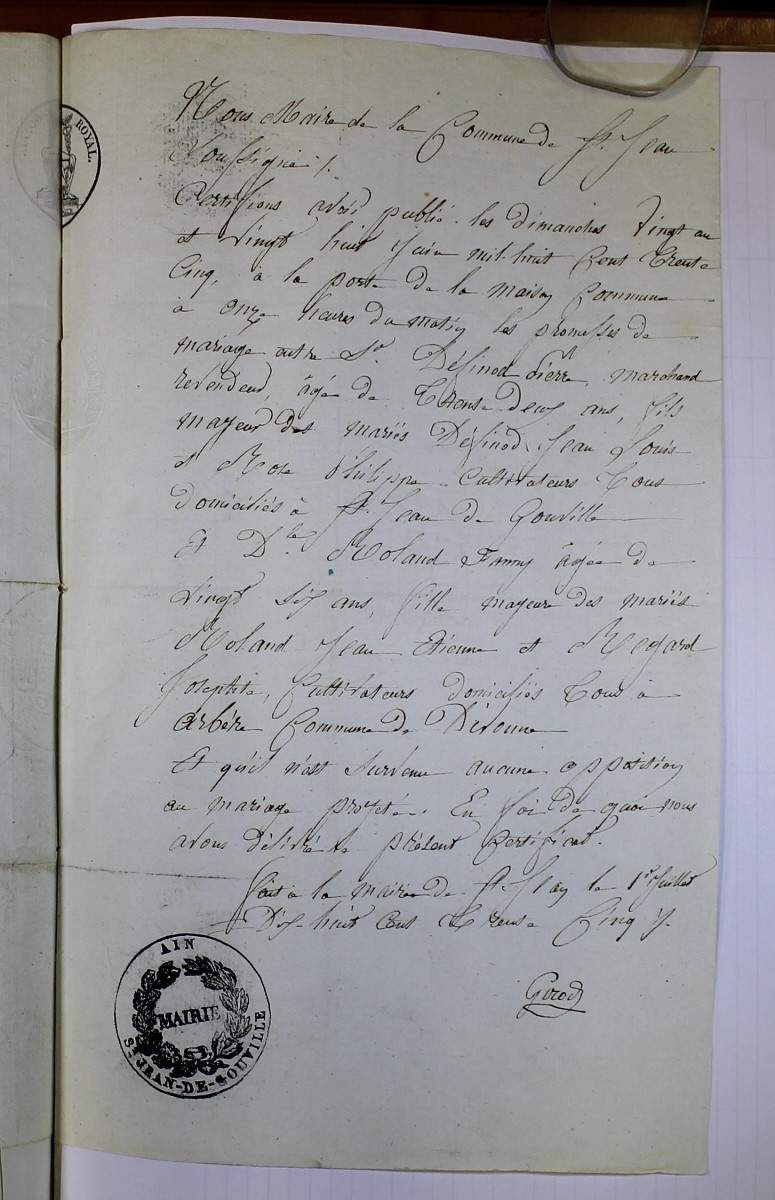 ROYAL.
Nous Maire de la Commune de St. Jean
Soussigné /.
Certifions avoir publié les dimanches Vingt au
et Vingt huit Juin mil huit Cent Trente
Cinq, à la porte de la maison Commune
à onze heures du matin les promesses de
mariage entre Sr. Désinod Pierre marchand
revendeur, âgé de Trense Deux ans, fils
majeur des mariés Désinod Jean Louis
et Rose Philippe Cultivateurs Tous
domiciliés à St. Jean de Gonville
Et Dlle. Roland Fanny âgée de
Vingt Six ans, fille majeure des mariés
Roland Jean Etienne et Regard
Josephte, Cultivateurs domiciliés Tous à
Arbère Commune de Divonne
Et qu'il n'est Survenu aucune opposition
au mariage projeté. En foi de quoi nous
avons délivré le présent Certificat.
fait à la mairie de St. Jean le 1er Juillet
Dix-huit Cent Trense Cinq /.
Girod
AIN
MAIRIE
ST-JEAN-DE-GOUVILLE